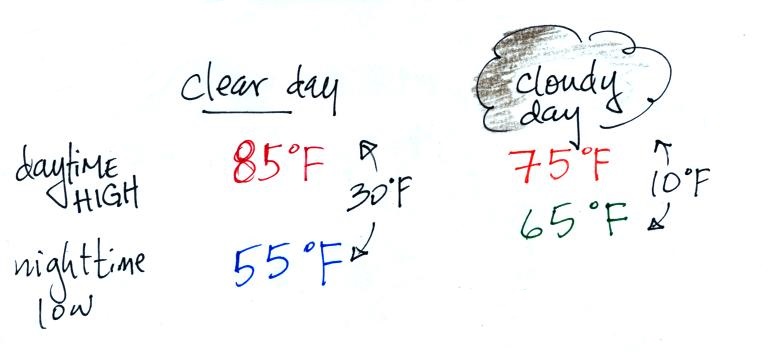 clear day
cloudy
day
daytime
HIGH
85°F
30°F
75°F
10°F
65°F
nighttime
low
55°F